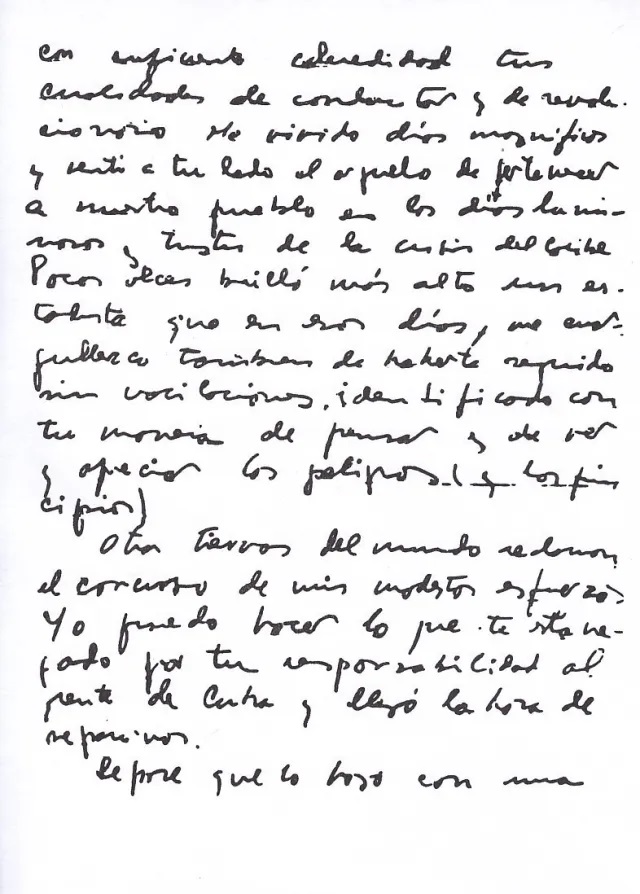 con suficiente celeridad tus
cualidades de conductor y de revolu-
cionario He vivido días magníficos
y sentí a tu lado el orgullo de pertenecer
a nuestro pueblo en los días lumi-
nosos y tristes de la crisis del Caribe
Pocas veces brilló más alto un es-
tadista que en esos días, me enor-
gullezco también de haberte seguido
sin vacilaciones, identificado con
tu manera de pensar y de ver
y apreciar los peligros (y los prin
cipios)
Otras tierras del mundo reclaman
el concurso de mis modestos esfuerzos
Yo puedo hacer lo que te está ne-
gado por tu responsabilidad al
frente de Cuba y llegó la hora de
separarnos.
Sépase que lo hago con una